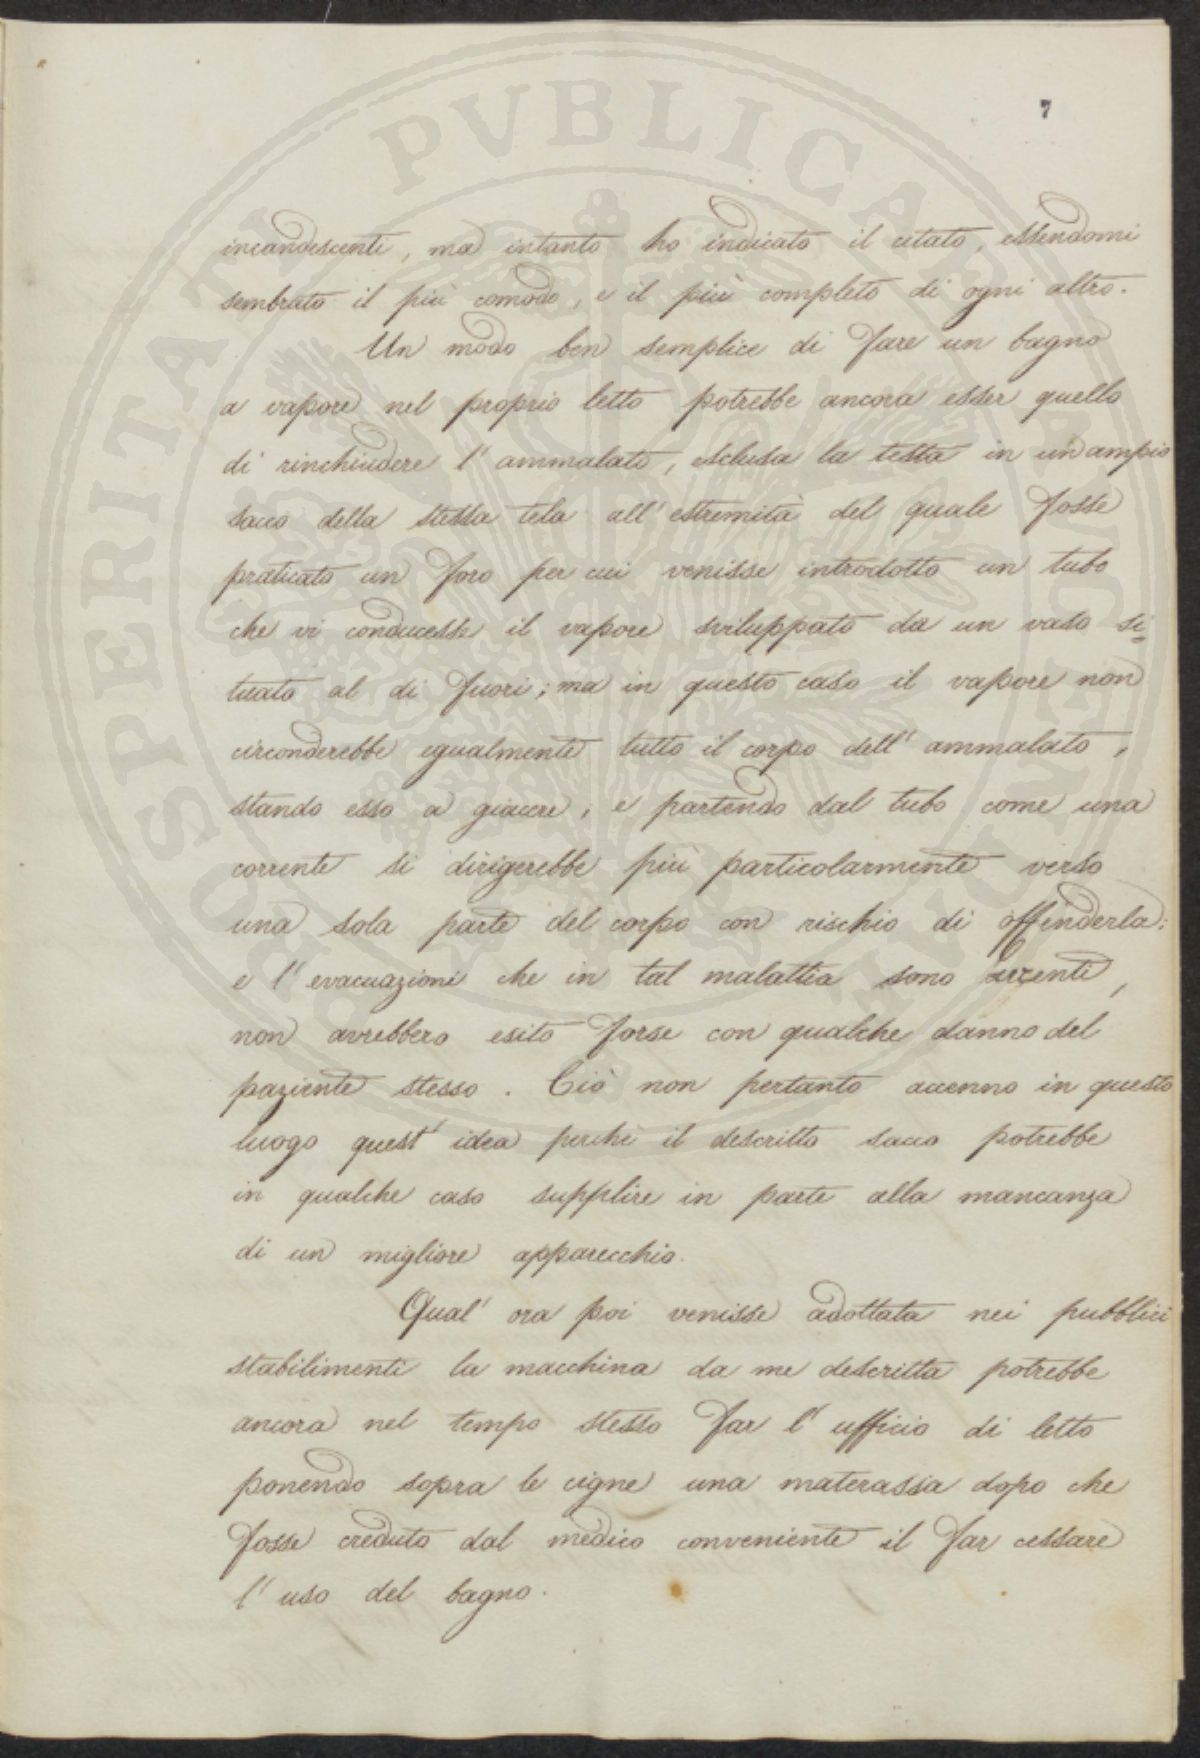 7
incandescenti, ma intanto ho indicato il citato, essendomi
sembrato il più comodo, e il più completo di ogni altro.
Un modo ben semplice di fare un bagno
a vapore nel proprio letto potrebbe ancora esser quello
di rinchiudere l' ammalato, esclusa la testa in un ampio
sacco della stessa tela all' estremità del quale fosse
praticato un foro per cui venisse introdotto un tubo
che vi conducesse il vapore sviluppato da un vaso si
tuato al di fuori; ma in questo caso il vapore non
circonderebbe egualmente tutto il corpo dell' ammalato,
stando esso a giacere, e partendo dal tubo come una
corrente si dirigerebbe più particolarmente verso
una sola parte del corpo con rischio di offenderla:
e l' evacuazioni che in tal malattia sono
non avrebbero esito forse con qualche danno del
paziente stesso. Ciò non pertanto accenno in questo
luogo quest' idea perchè il descritto sacco potrebbe
in qualche caso supplire in parte alla mancanza
di un migliore apparecchio.
Qual' ora poi venisse adottata nei pubblici
stabilimenti la macchina da me descritta potrebbe
ancora nel tempo stesso far l' ufficio di letto
ponendo sopra le cigne una materassa dopo che
fosse creduto dal medico conveniente il far cessare
l' uso del bagno.